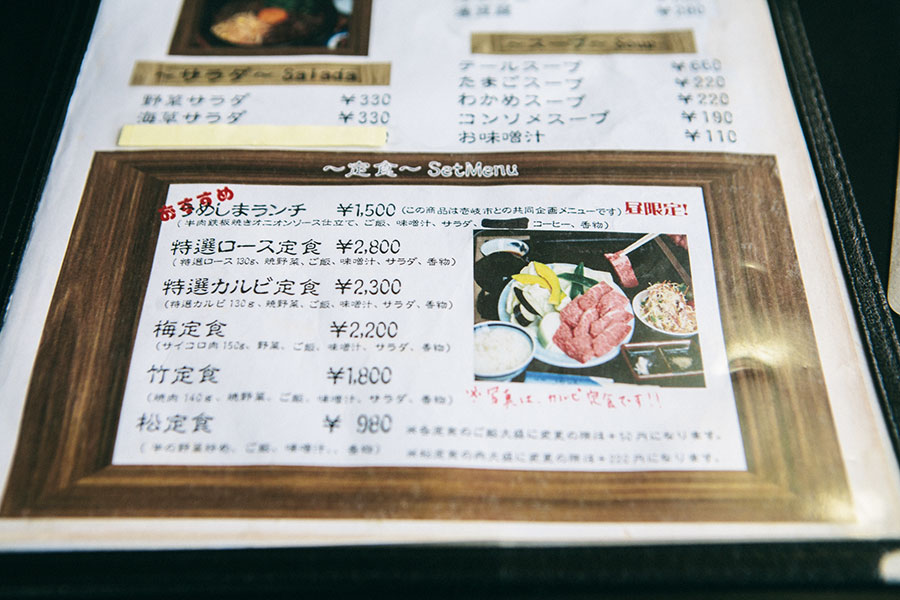 ¥380
～サラダ～ Salada
野菜サラダ ¥330
海草サラダ ¥330
～スープ～ Soup
テールスープ ¥660
たまごスープ ¥220
わかめスープ ¥220
コンソメスープ ¥190
お味噌汁 ¥110
～定食～ SetMenu
おすすめ
うめしまランチ ¥1,500 (この商品は壱岐市との共同企画メニューです) 昼限定!
(牛肉鉄板焼きオニオンソース仕立て、ご飯、味噌汁、サラダ、 コーヒー、香物)
特選ロース定食 ¥2,800
(特選ロース130g、焼野菜、ご飯、味噌汁、サラダ、香物)
特選カルビ定食 ¥2,300
(特選カルビ130g、焼野菜、ご飯、味噌汁、サラダ、香物)
梅定食 ¥2,200
(サイコロ肉150g、野菜、ご飯、味噌汁、サラダ、香物)
竹定食 ¥1,800
(焼肉140g、焼野菜、ご飯、味噌汁、サラダ、香物)
松定食 ¥ 980
(牛の野菜炒め、ご飯、味噌汁、、香物)
※写真は、カルビ定食です!!
※各定食のご飯大盛に変更の際は+50円になります。
※松定食の肉大盛に変更の際は+200円になります。